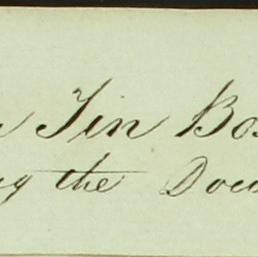 Tin Bo
ng the Docu